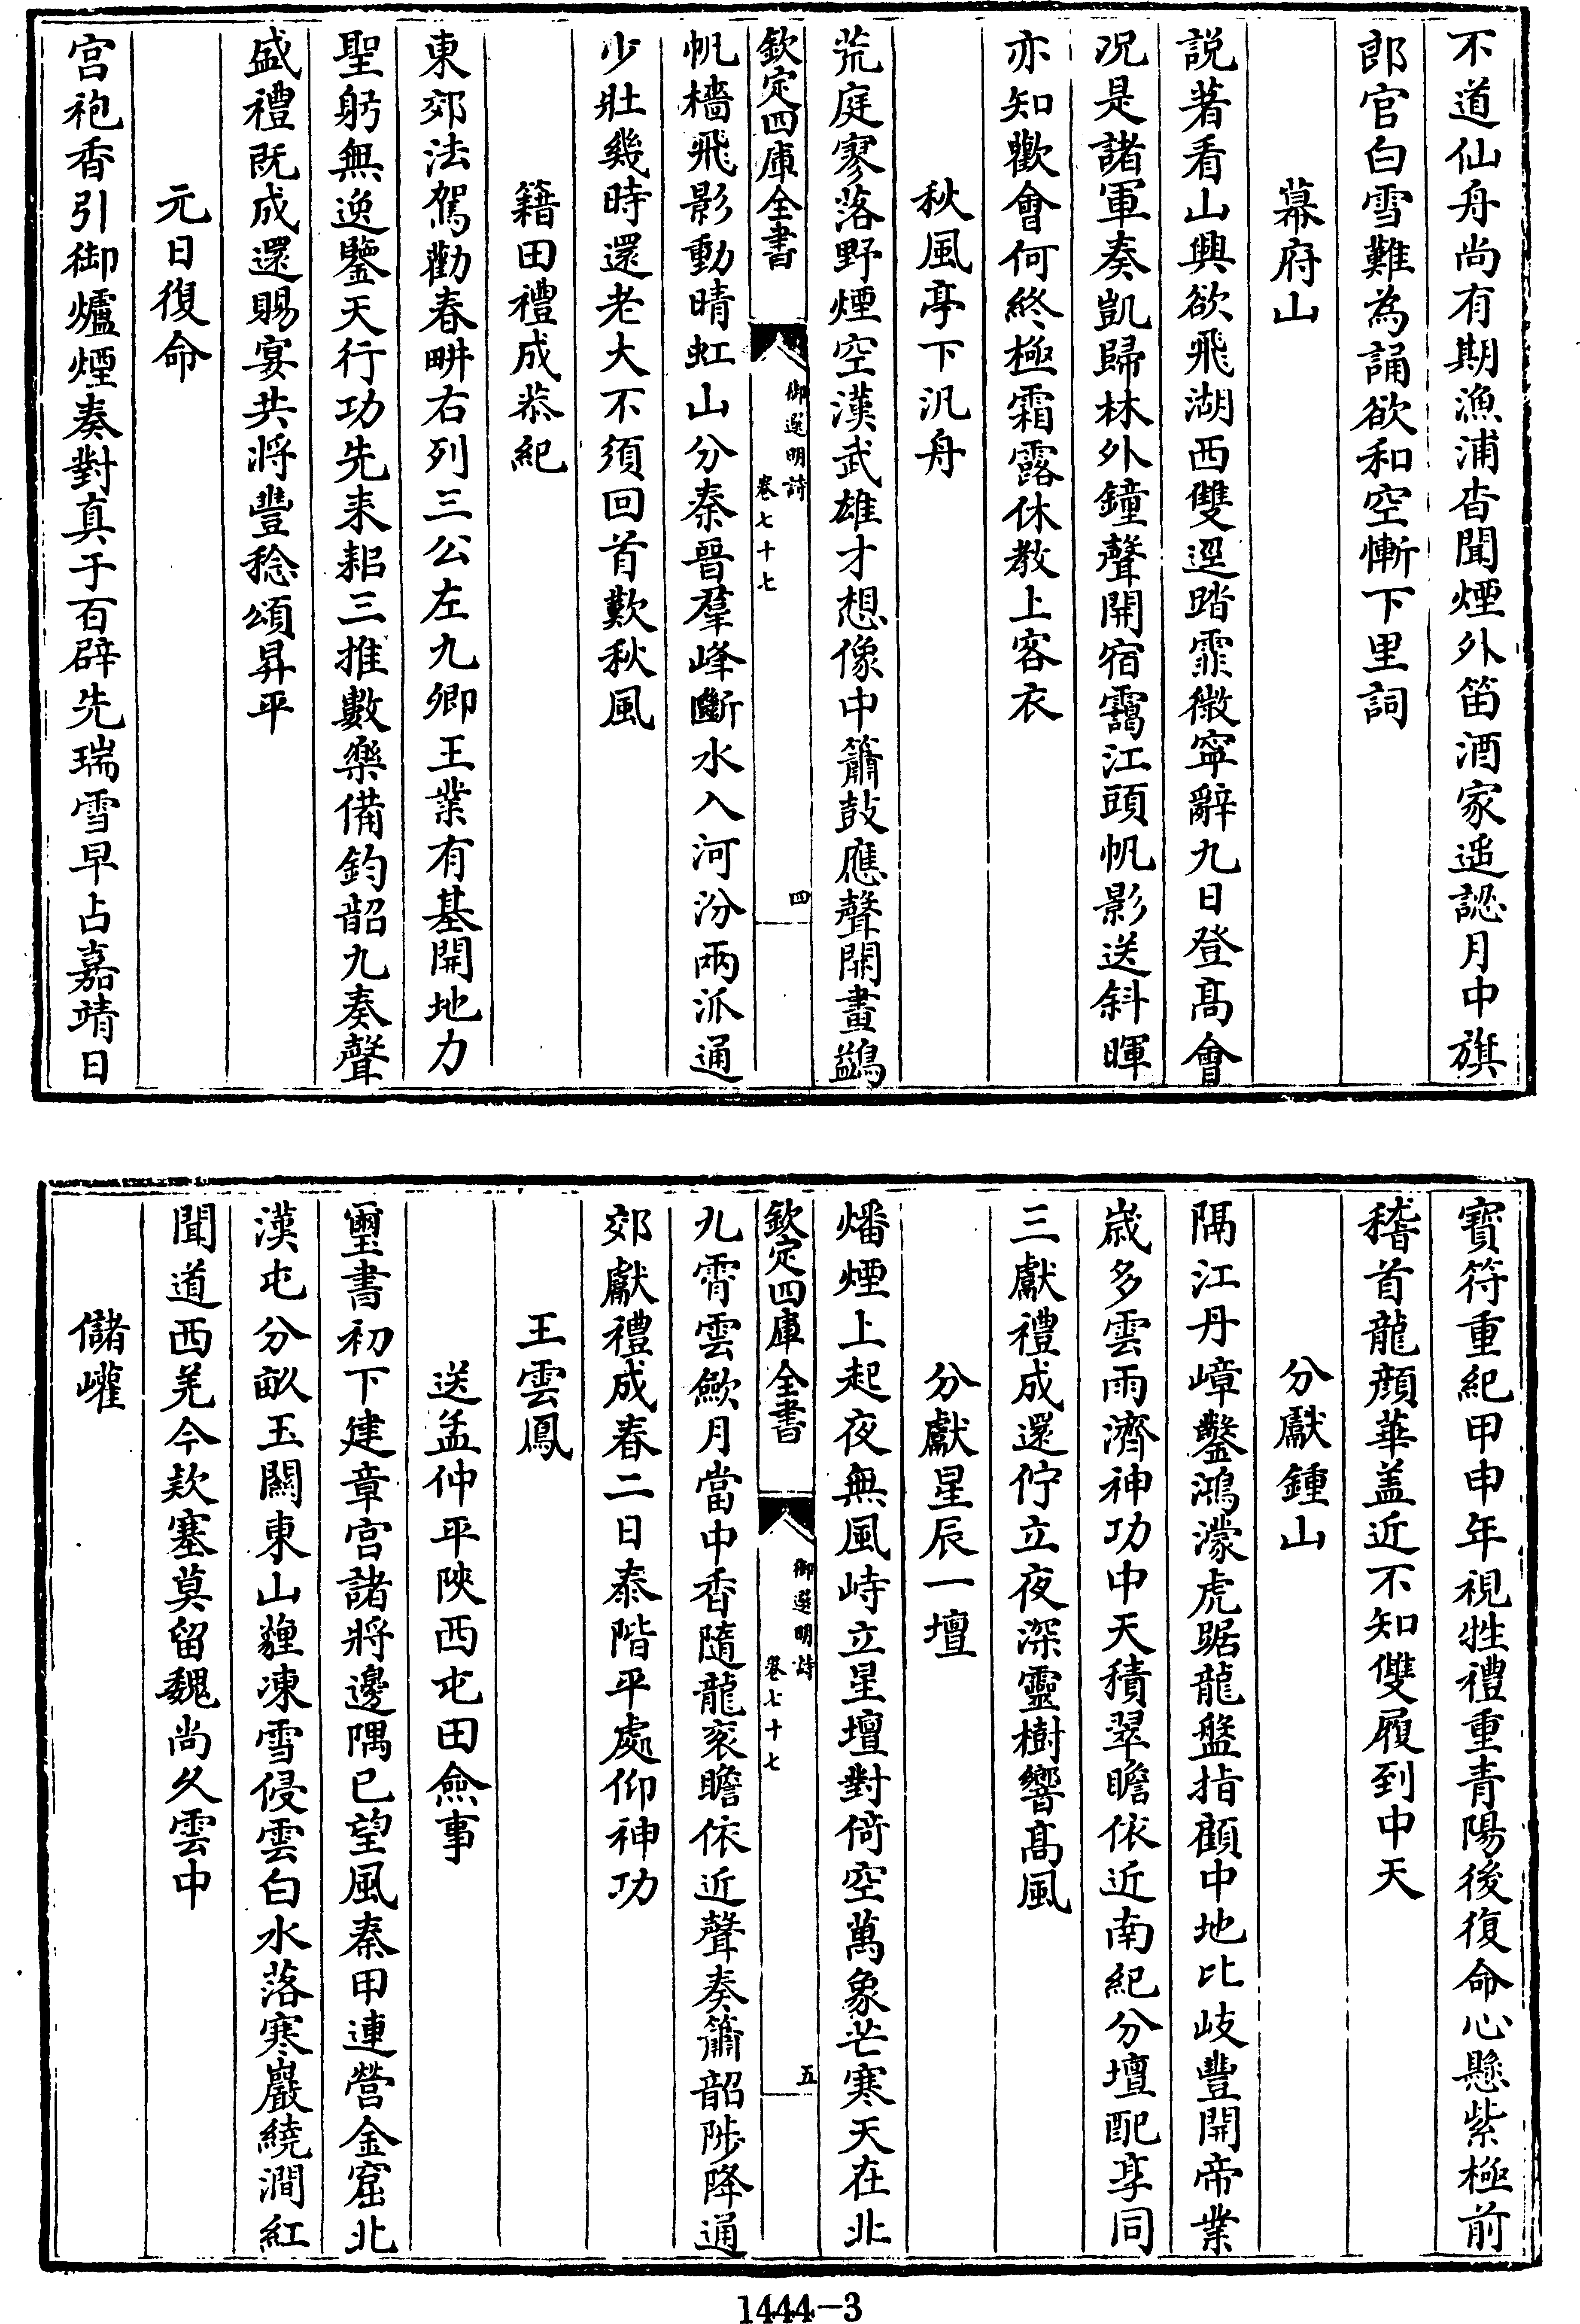 不道仙舟尚有期漁浦杳聞煙外笛酒家遥認月中旗
郎官白雪難為誦欲和空慚下里詞
幕府山
説著看山興欲飛湖西雙逕踏霏微寧辭九日登髙會
況是諸軍奏凱歸林外鐘聲開宿靄江頭帆影送斜暉
亦知歡會何終極霜露休教上客衣
秋風亭下汎舟
荒庭寥落野煙空漢武雄才想像中簫鼓應聲開畫鷁
欽定四庫全書
御選明詩
卷七十七
四
帆檣飛影動晴虹山分秦晉羣峰斷水入河汾兩派通
少壯幾時還老大不須回首歎秋風
籍田禮成恭紀
東郊法駕勸春畊右列三公左九卿王業有基開地力
聖躬無逸鑒天行功先耒耜三推數樂備鈞韶九奏聲
盛禮既成還賜宴共將豐稔頌昇平
元日復命
宫袍香引御爐煙奏對真于百辟先瑞雪早占嘉靖日
寶符重紀甲申年視牲禮重青陽後復命心懸紫極前
稽首龍顔華盖近不知雙履到中天
分獻鍾山
隔江丹嶂鑿鴻濛虎踞龍盤指顧中地比岐豐開帝業
嵗多雲雨濟神功中天積翠瞻依近南紀分壇配享同
三獻禮成還佇立夜深靈樹響髙風
分獻星辰一壇
燔煙上起夜無風峙立星壇對倚空萬象芒寒天在北
欽定四庫全書
御選明詩
卷七十七
五
九霄雲歛月當中香隨龍衮瞻依近聲奏簫韶陟降通
郊獻禮成春二日泰階平處仰神功
王雲鳳
送孟仲平陜西屯田僉事
璽書初下建章宫諸將邊隅已望風秦甲連營金窟北
漢屯分畝玉關東山薶凍雪侵雲白水落寒巖繞澗紅
聞道西羌今欵塞莫留魏尚久雲中
儲巏
1444-3